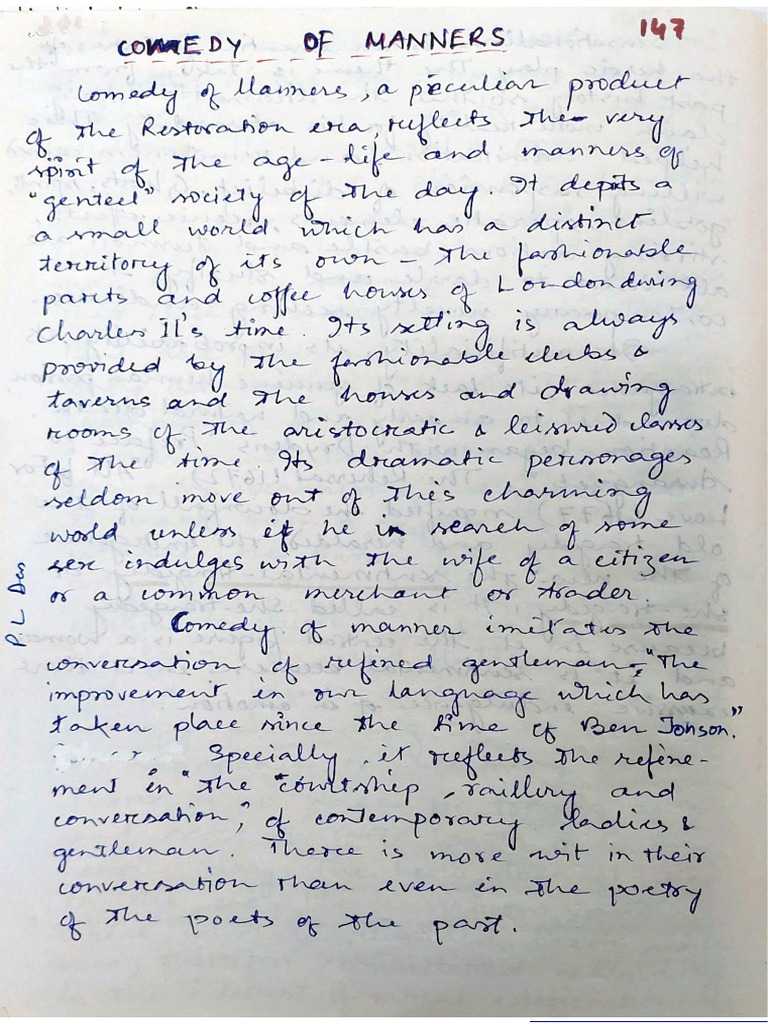 147
COMEDY OF MANNERS
Comedy of Manners, a peculiar product
of the Restoration era, reflects the very
spirit of the age - life and manners of
"genteel" society of the day. It depits a
a small world which has a distinct
territory of its own - the fashionable
parts and coffee houses of London during
Charles II's time. Its setting is always
provided by the fashionable clubs &
taverns and the houses and drawing
rooms of the aristocratic & leisured classes
of the time. Its dramatic personages
seldom move out of thes charming
world unless if he in search of some
sex indulges with the wife of a citizen
or a common merchant or trader.
P L Das
Comedy of manner imitates the
conversation of refened gentleman, "The
improvement in our language which has
taken place since the time of Ben Jonson."
Specially, it reflects the refene-
ment in "the courtship, raillery and
conversation," of contemporary ladies &
gentleman. There is more wit in their
conversation than even in the poetry
of the poets of the past.